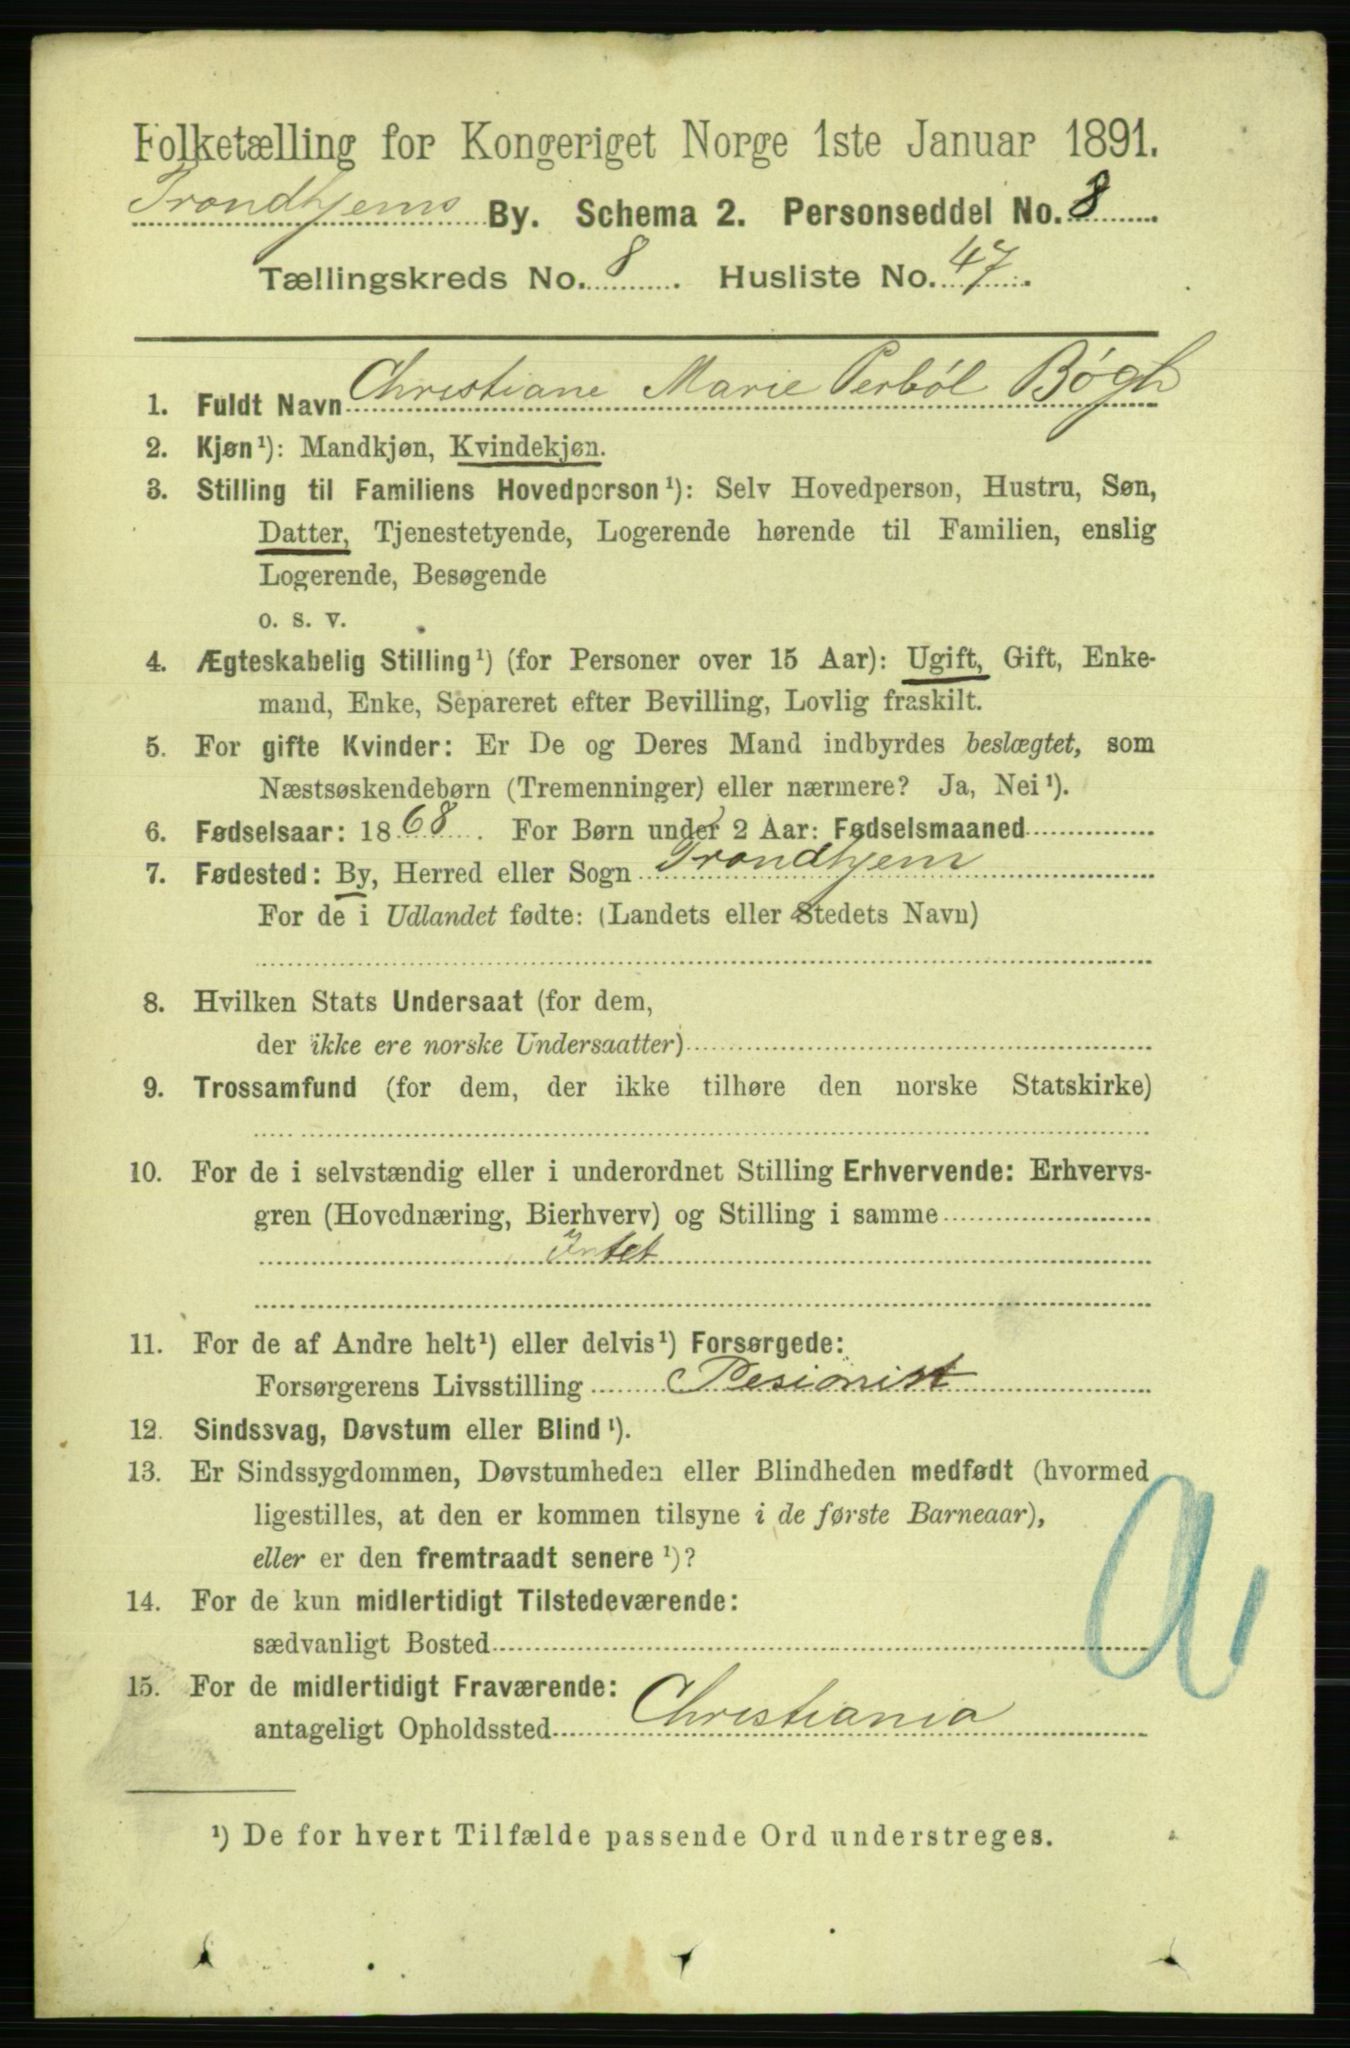 Folketælling for Kongeriget Norge 1ste Januar 1891.
Trondhjems By. Schema 2. Personseddel No. 8
Tællingskreds No. 8. Husliste No. 47.
1. Fuldt Navn Christiane Marie Perbøl Bøgh
2. Kjøn¹): Mandkjøn, Kvindekjøn.
3. Stilling til Familiens Hovedperson¹): Selv Hovedperson, Hustru, Søn,
Datter, Tjenestetyende, Logerende hørende til Familien, enslig
Logerende, Besøgende
o. s. v.
4. Ægteskabelig Stilling¹) (for Personer over 15 Aar): Ugift, Gift, Enke-
mand, Enke, Separeret efter Bevilling, Lovlig fraskilt.
5. For gifte Kvinder: Er De og Deres Mand indbyrdes beslægtet, som
Næstsøskendebørn (Tremenninger) eller nærmere? Ja, Nei¹).
6. Fødselsaar: 1868. For Børn under 2 Aar: Fødselsmaaned
7. Fødested: By, Herred eller Sogn Trondhjem
For de i Udlandet fødte: (Landets eller Stedets Navn)
8. Hvilken Stats Undersaat (for dem,
der ikke ere norske Undersaatter)
9. Trossamfund (for dem, der ikke tilhøre den norske Statskirke)
10. For de i selvstændig eller i underordnet Stilling Erhvervende: Erhvervs-
gren (Hovednæring, Bierhverv) og Stilling i samme
Intet
11. For de af Andre helt¹) eller delvis¹) Forsørgede:
Forsørgerens Livsstilling Pesionist
12. Sindssvag, Døvstum eller Blind¹).
13. Er Sindssygdommen, Døvstumheden eller Blindheden medfødt (hvormed
ligestilles, at den er kommen tilsyne i de første Barneaar),
eller er den fremtraadt senere¹)?
14. For de kun midlertidigt Tilstedeværende:
sædvanligt Bosted
15. For de midlertidigt Fraværende:
antageligt Opholdssted Christiania
¹) De for hvert Tilfælde passende Ord understreges.